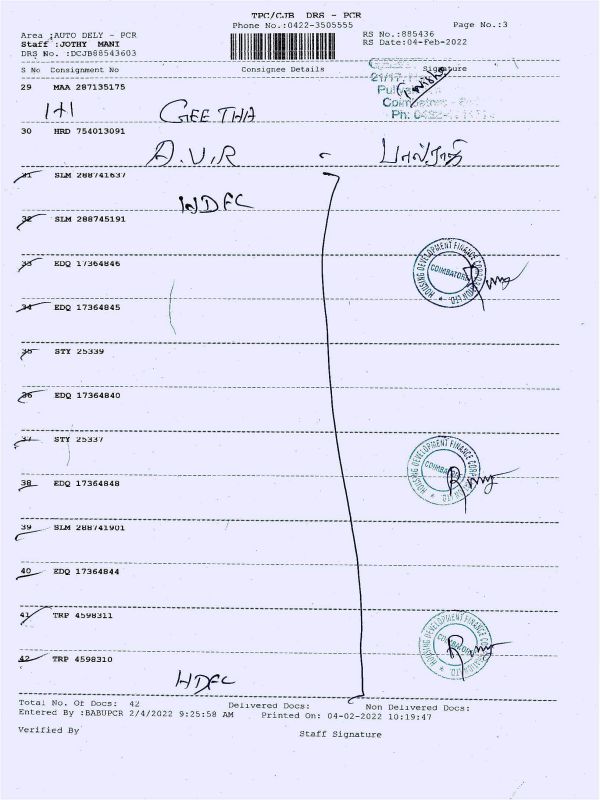 TPC/CJB DRS - PCR
Phone No.:0422-3505555 Page No.:3
Area :AUTO DELY - PCR RS No.:885436
Staff :JOTHY MANI RS Date:04-Feb-2022
DRS No. :DCJB88543603
S No Consignment No Consignee Details Signature
29 MAA 287135175
GEETHA
21/17,
Coimbatore
30 HRD 754013091
A.V.R
31 SLM 288741637
HDFC
32 SLM 288745191
33 EDQ 17364846
HOUSING DEVELOPMENT FINANCE CORPORATION LTD.
COIMBATORE
34 EDQ 17364845
35 STY 25339
36 EDQ 17364840
37 STY 25337
HOUSING DEVELOPMENT FINANCE CORPORATION LTD.
COIMBATORE
38 EDQ 17364848
39 SLM 288741901
40 EDQ 17364844
41 TRP 4598311
HOUSING DEVELOPMENT FINANCE CORPORATION LTD.
COIMBATORE
42 TRP 4598310
HDFC
Total No. Of Docs: 42 Delivered Docs: Non Delivered Docs:
Entered By :BABUPCR 2/4/2022 9:25:58 AM Printed On: 04-02-2022 10:19:47
Verified By Staff Signature